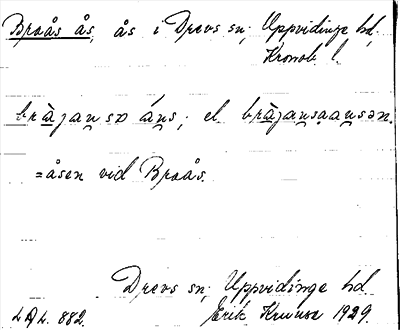 Braås ås, ås i Drevs sn; Uppvidinge hd,
Kronob. l.
bràjansə áns; el bràjansaansən.
=åsen vid Braås.
Drevs sn; Uppvidinge hd
LAL. 882. Erik 1929.